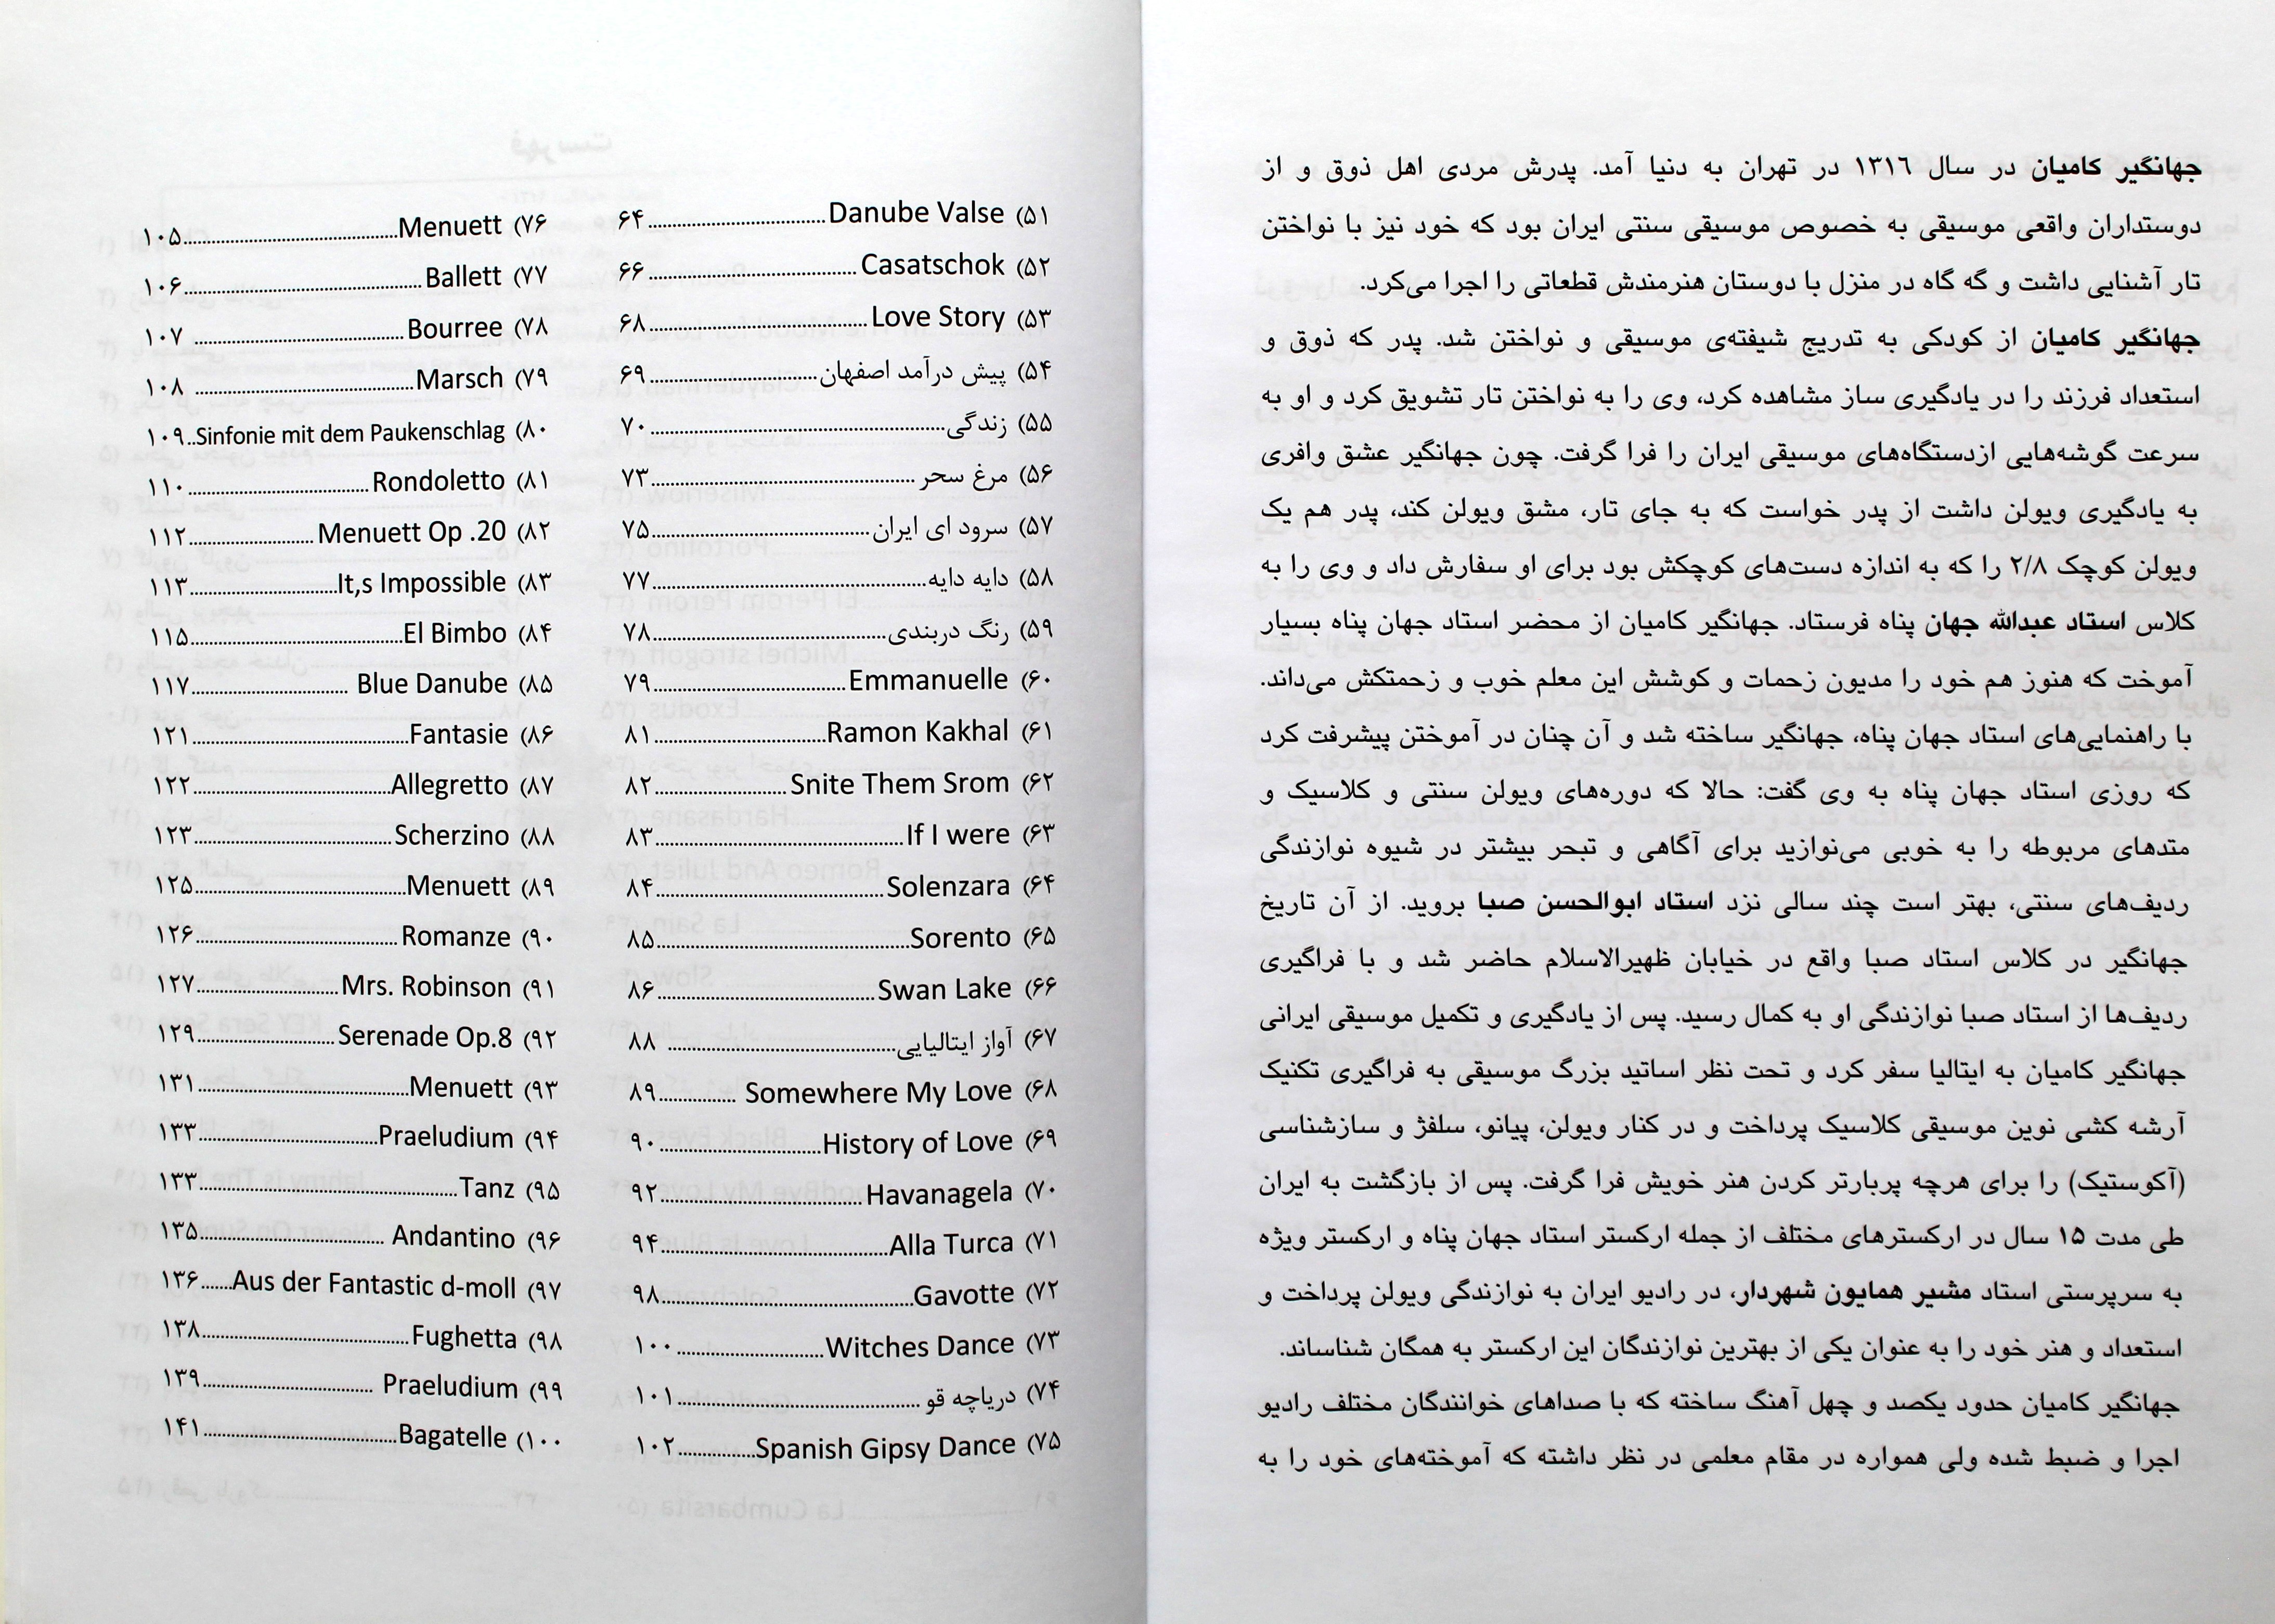 جهانگیر کامیان در سال ۱۳۱٦ در تهران به دنیا آمد. پدرش مردی اهل ذوق و از
دوستداران واقعی موسیقی به خصوص موسیقی سنتی ایران بود که خود نیز با نواختن
تار آشنایی داشت و گه گاه در منزل با دوستان هنرمندش قطعاتی را اجرا می‌کرد.
جهانگیر کامیان از کودکی به تدریج شیفته‌ی موسیقی و نواختن شد. پدر که ذوق و
استعداد فرزند را در یادگیری ساز مشاهده کرد، وی را به نواختن تار تشویق کرد و او به
سرعت گوشه‌هایی ازدستگاه‌های موسیقی ایران را فرا گرفت. چون جهانگیر عشق وافری
به یادگیری ویولن داشت از پدر خواست که به جای تار، مشق ویولن کند، پدر هم یک
ویولن کوچک ۲/۸ را که به اندازه دست‌های کوچکش بود برای او سفارش داد و وی را به
کلاس استاد عبدالله جهان پناه فرستاد. جهانگیر کامیان از محضر استاد جهان پناه بسیار
آموخت که هنوز هم خود را مدیون زحمات و کوشش این معلم خوب و زحمتکش می‌داند.
با راهنمایی‌های استاد جهان پناه، جهانگیر ساخته شد و آن چنان در آموختن پیشرفت کرد
که روزی استاد جهان پناه به وی گفت: حالا که دوره‌های ویولن سنتی و کلاسیک و
متدهای مربوطه را به خوبی می‌نوازید برای آگاهی و تبحر بیشتر در شیوه نوازندگی
ردیف‌های سنتی، بهتر است چند سالی نزد استاد ابوالحسن صبا بروید. از آن تاریخ
جهانگیر در کلاس استاد صبا واقع در خیابان ظهیرالاسلام حاضر شد و با فراگیری
ردیف‌ها از استاد صبا نوازندگی او به کمال رسید. پس از یادگیری و تکمیل موسیقی ایرانی
جهانگیر کامیان به ایتالیا سفر کرد و تحت نظر اساتید بزرگ موسیقی به فراگیری تکنیک
آرشه کشی نوین موسیقی کلاسیک پرداخت و در کنار ویولن، پیانو، سلفژ و سازشناسی
(آکوستیک) را برای هرچه پربارتر کردن هنر خویش فرا گرفت. پس از بازگشت به ایران
طی مدت ۱۵ سال در ارکسترهای مختلف از جمله ارکستر استاد جهان پناه و ارکستر ویژه
به سرپرستی استاد مشیر همایون شهردار، در رادیو ایران به نوازندگی ویولن پرداخت و
استعداد و هنر خود را به عنوان یکی از بهترین نوازندگان این ارکستر به همگان شناساند.
جهانگیر کامیان حدود یکصد و چهل آهنگ ساخته که با صداهای خوانندگان مختلف رادیو
اجرا و ضبط شده ولی همواره در مقام معلمی در نظر داشته که آموخته‌های خود را به
۵۱) Danube Valse ........ ۶۴
۵۲) Casatschok ........ ۶۶
۵۳) Love Story ........ ۶۸
۵۴) پیش درآمد اصفهان ........ ۶۹
۵۵) زندگی ........ ۷۰
۵۶) مرغ سحر ........ ۷۳
۵۷) سرود ای ایران ........ ۷۵
۵۸) دایه دایه ........ ۷۷
۵۹) رنگ دربندی ........ ۷۸
۶۰) Emmanuelle ........ ۷۹
۶۱) Ramon Kakhal ........ ۸۱
۶۲) Snite Them Srom ........ ۸۲
۶۳) If I were ........ ۸۳
۶۴) Solenzara ........ ۸۴
۶۵) Sorento ........ ۸۵
۶۶) Swan Lake ........ ۸۶
۶۷) آواز ایتالیایی ........ ۸۸
۶۸) Somewhere My Love ........ ۸۹
۶۹) History of Love ........ ۹۰
۷۰) Havanagela ........ ۹۲
۷۱) Alla Turca ........ ۹۴
۷۲) Gavotte ........ ۹۸
۷۳) Witches Dance ........ ۱۰۰
۷۴) دریاچه قو ........ ۱۰۱
۷۵) Spanish Gipsy Dance ........ ۱۰۲
۷۶) Menuett ........ ۱۰۵
۷۷) Ballett ........ ۱۰۶
۷۸) Bourree ........ ۱۰۷
۷۹) Marsch ........ ۱۰۸
۸۰) Sinfonie mit dem Paukenschlag .. ۱۰۹
۸۱) Rondoletto ........ ۱۱۰
۸۲) Menuett Op .20 ........ ۱۱۲
۸۳) It,s Impossible ........ ۱۱۳
۸۴) El Bimbo ........ ۱۱۵
۸۵) Blue Danube ........ ۱۱۷
۸۶) Fantasie ........ ۱۲۱
۸۷) Allegretto ........ ۱۲۲
۸۸) Scherzino ........ ۱۲۳
۸۹) Menuett ........ ۱۲۵
۹۰) Romanze ........ ۱۲۶
۹۱) Mrs. Robinson ........ ۱۲۷
۹۲) Serenade Op.8 ........ ۱۲۹
۹۳) Menuett ........ ۱۳۱
۹۴) Praeludium ........ ۱۳۳
۹۵) Tanz ........ ۱۳۳
۹۶) Andantino ........ ۱۳۵
۹۷) Aus der Fantastic d-moll ...... ۱۳۶
۹۸) Fughetta ........ ۱۳۸
۹۹) Praeludium ........ ۱۳۹
۱۰۰) Bagatelle ........ ۱۴۱